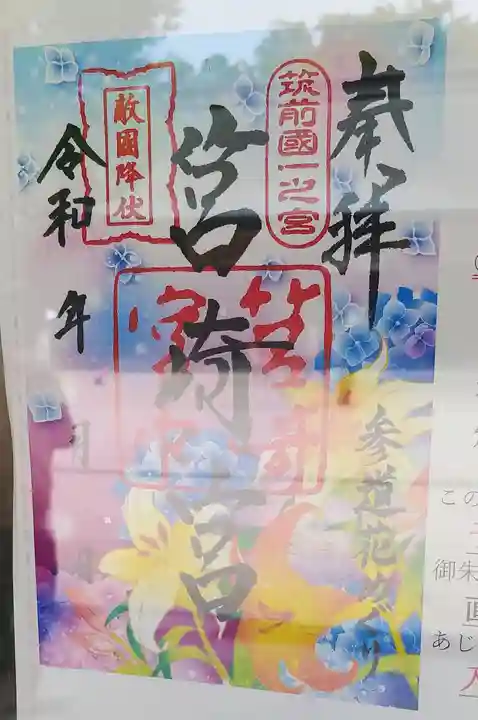 奉拝
筑前國一之宮
筥崎宮
敵國降伏
参道花めぐり
令和 年 月 日
この
御朱
画
あじ
入